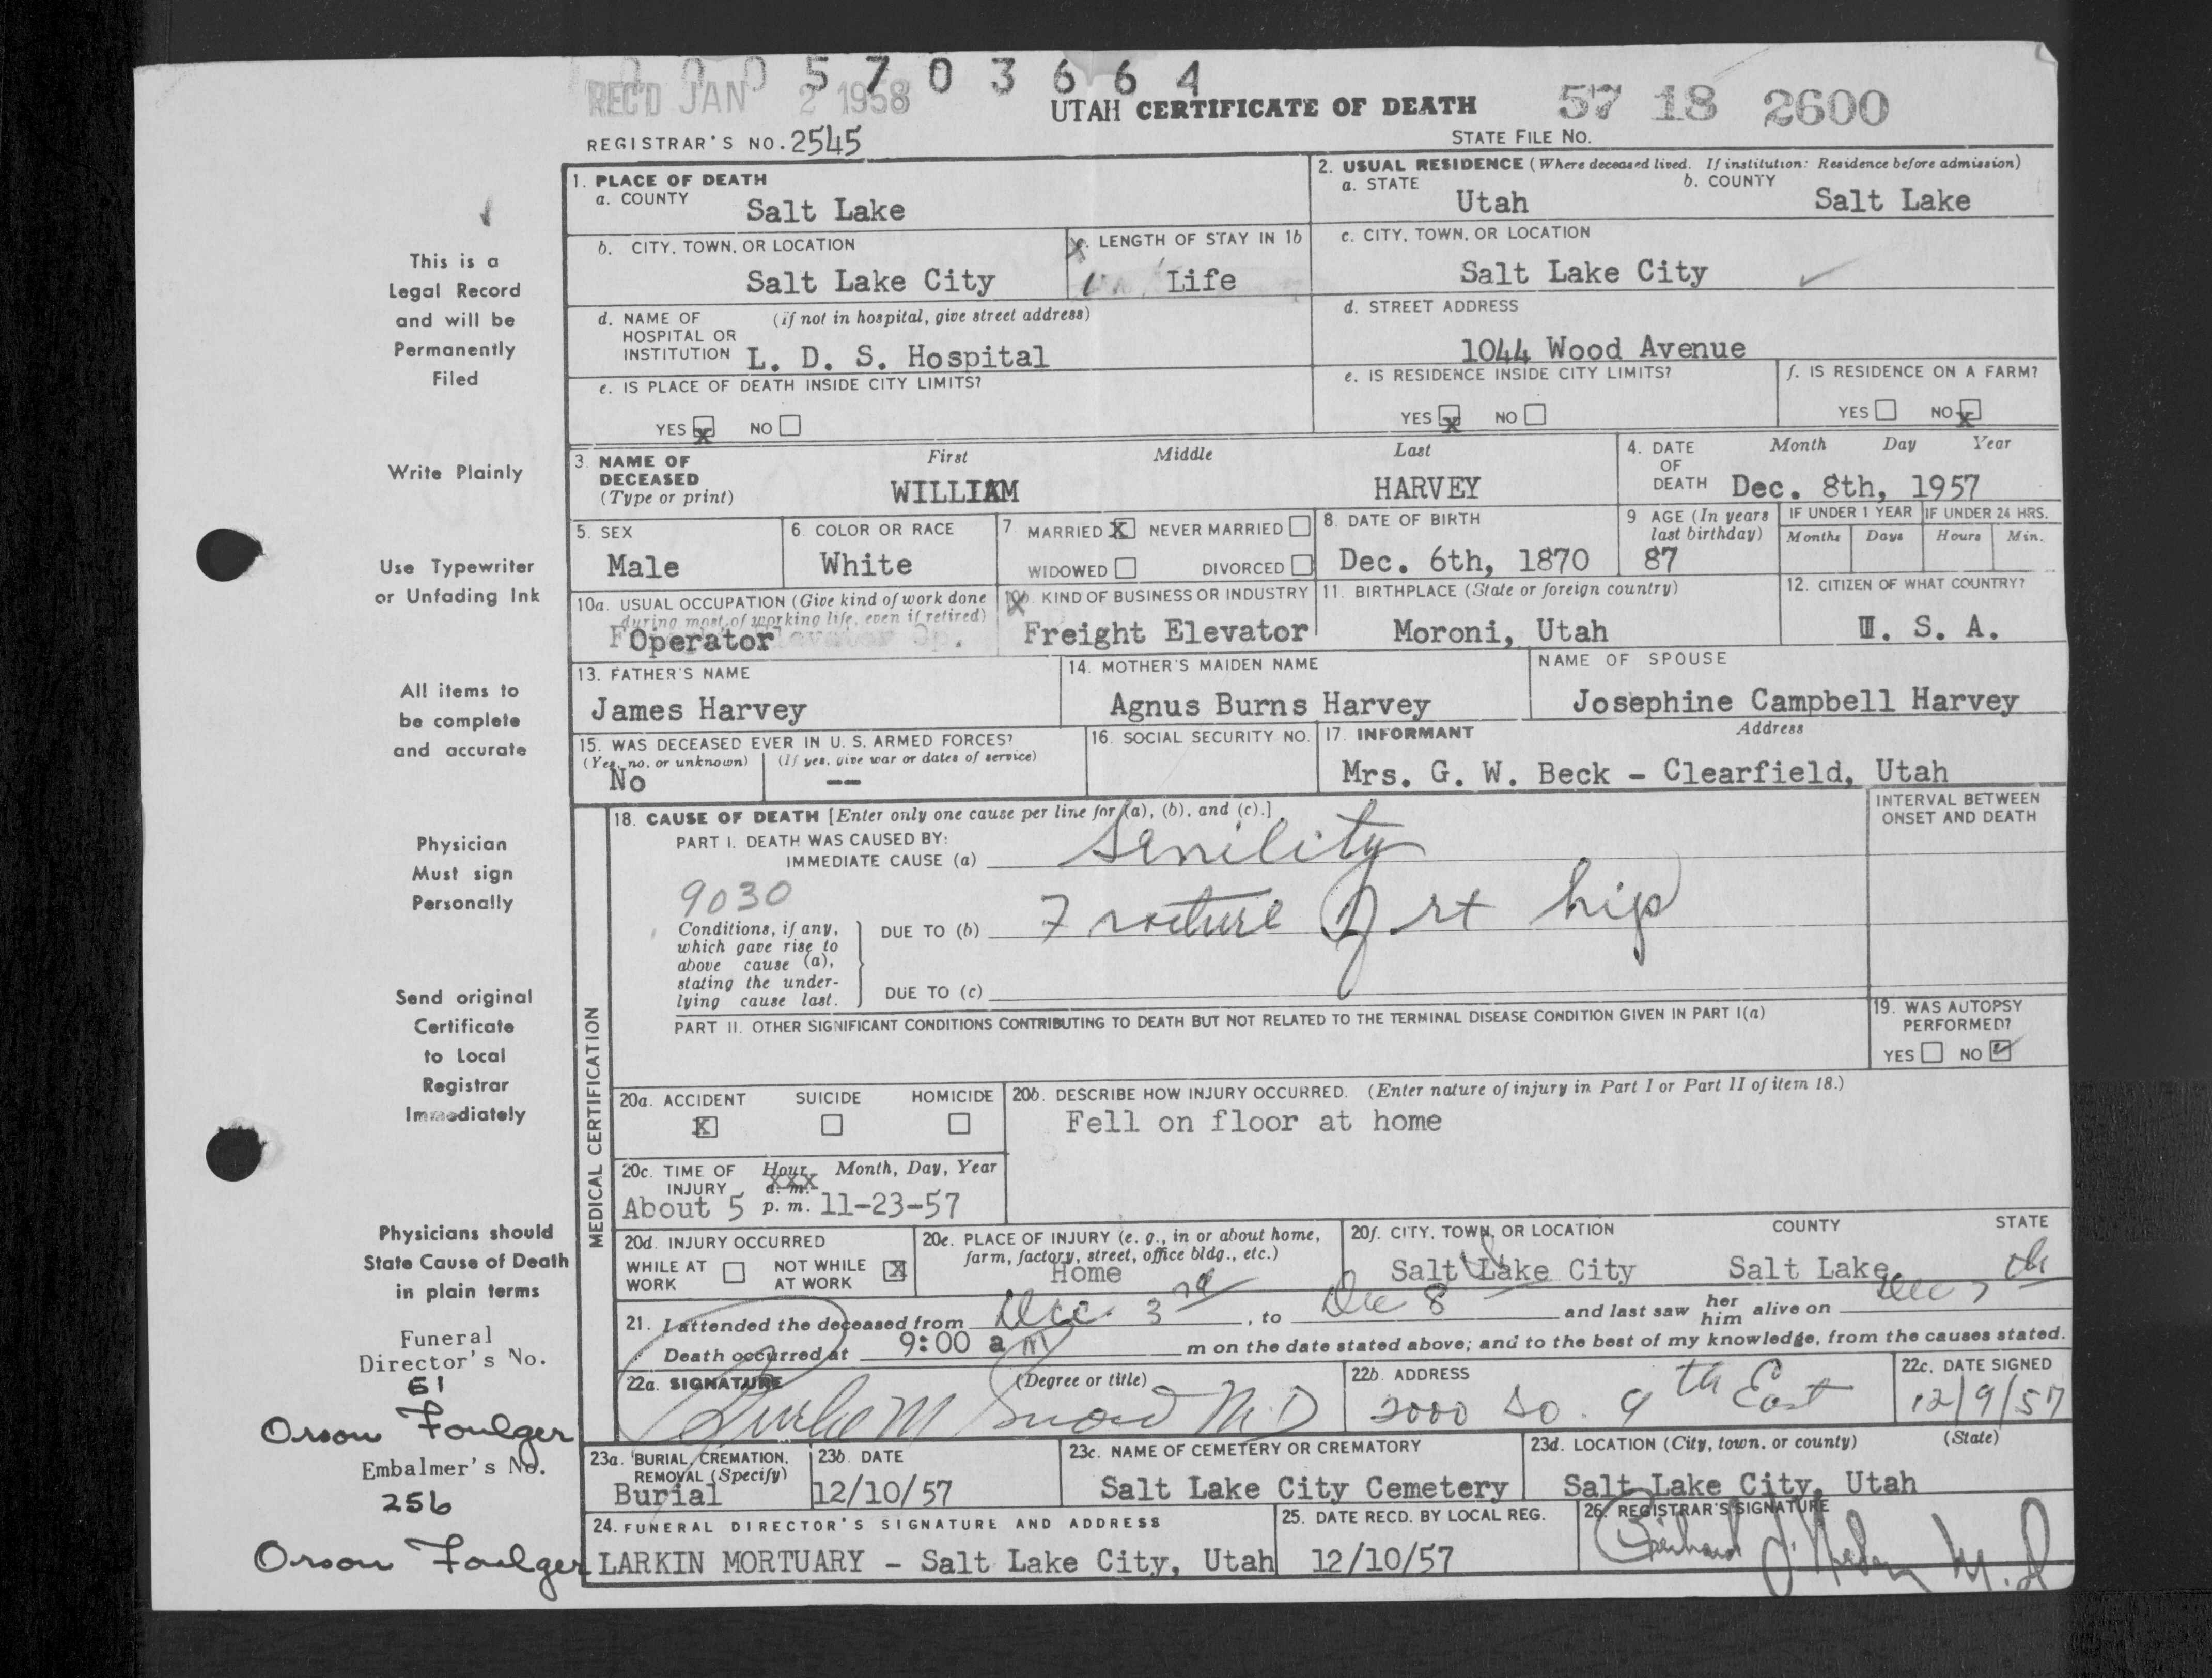 0 0 0 5 7 0 3 6 6 4
REC'D JAN 2 1958
UTAH CERTIFICATE OF DEATH
57 18 2600
STATE FILE NO.
REGISTRAR'S NO. 2545
This is a
Legal Record
and will be
Permanently
Filed
Write Plainly
Use Typewriter
or Unfading Ink
All items to
be complete
and accurate
Physician
Must sign
Personally
Send original
Certificate
to Local
Registrar
Immediately
Physicians should
State Cause of Death
in plain terms
Funeral
Director's No.
61
Orson Foulger
Embalmer's No.
256
Orson Foulger
1. PLACE OF DEATH
a. COUNTY
Salt Lake
2. USUAL RESIDENCE (Where deceased lived. If institution: Residence before admission)
a. STATE
Utah
b. COUNTY
Salt Lake
b. CITY, TOWN, OR LOCATION
Salt Lake City
c. LENGTH OF STAY IN 1b
Life
c. CITY, TOWN, OR LOCATION
Salt Lake City
d. NAME OF (if not in hospital, give street address)
HOSPITAL OR
INSTITUTION L. D. S. Hospital
d. STREET ADDRESS
1044 Wood Avenue
e. IS PLACE OF DEATH INSIDE CITY LIMITS?
YES X NO
e. IS RESIDENCE INSIDE CITY LIMITS?
YES X NO
f. IS RESIDENCE ON A FARM?
YES NO X
3. NAME OF
DECEASED
(Type or print)
First Middle Last
WILLIAM HARVEY
4. DATE
OF
DEATH
Month Day Year
Dec. 8th, 1957
5. SEX
Male
6. COLOR OR RACE
White
7. MARRIED X NEVER MARRIED
WIDOWED DIVORCED
8. DATE OF BIRTH
Dec. 6th, 1870
9 AGE (In years
last birthday)
87
IF UNDER 1 YEAR IF UNDER 24 HRS.
Months Days Hours Min.
10a. USUAL OCCUPATION (Give kind of work done
during most of working life, even if retired)
Operator
10b. KIND OF BUSINESS OR INDUSTRY
Freight Elevator
11. BIRTHPLACE (State or foreign country)
Moroni, Utah
12. CITIZEN OF WHAT COUNTRY?
U. S. A.
13. FATHER'S NAME
James Harvey
14. MOTHER'S MAIDEN NAME
Agnus Burns Harvey
NAME OF SPOUSE
Josephine Campbell Harvey
15. WAS DECEASED EVER IN U. S. ARMED FORCES?
(Yes, no, or unknown) (If yes, give war or dates of service)
No --
16. SOCIAL SECURITY NO.
17. INFORMANT Address
Mrs. G. W. Beck - Clearfield, Utah
MEDICAL CERTIFICATION
18. CAUSE OF DEATH [Enter only one cause per line for (a), (b), and (c).]
PART I. DEATH WAS CAUSED BY:
IMMEDIATE CAUSE (a) Senility
INTERVAL BETWEEN
ONSET AND DEATH
9030
Conditions, if any,
which gave rise to
above cause (a),
stating the under-
lying cause last.
DUE TO (b) Fracture of rt hip
DUE TO (c)
PART II. OTHER SIGNIFICANT CONDITIONS CONTRIBUTING TO DEATH BUT NOT RELATED TO THE TERMINAL DISEASE CONDITION GIVEN IN PART I(a)
19. WAS AUTOPSY
PERFORMED?
YES NO ✓
20a. ACCIDENT SUICIDE HOMICIDE
X
20b. DESCRIBE HOW INJURY OCCURRED. (Enter nature of injury in Part I or Part II of item 18.)
Fell on floor at home
20c. TIME OF Hour Month, Day, Year
INJURY a. m.
About 5 p. m. 11-23-57
20d. INJURY OCCURRED
WHILE AT WORK NOT WHILE AT WORK X
20e. PLACE OF INJURY (e. g., in or about home,
farm, factory, street, office bldg., etc.)
Home
20f. CITY, TOWN, OR LOCATION COUNTY STATE
Salt Lake City Salt Lake
21. I attended the deceased from Dec. 3rd, to Dec 8 and last saw her him alive on Dec 7th
Death occurred at 9:00 a m m on the date stated above; and to the best of my knowledge, from the causes stated.
22a. SIGNATURE (Degree or title)
Burke M Snow M.D
22b. ADDRESS
2000 So. 9th East
22c. DATE SIGNED
12/9/57
23a. BURIAL, CREMATION,
REMOVAL (Specify)
Burial
23b. DATE
12/10/57
23c. NAME OF CEMETERY OR CREMATORY
Salt Lake City Cemetery
23d. LOCATION (City, town, or county) (State)
Salt Lake City, Utah
24. FUNERAL DIRECTOR'S SIGNATURE AND ADDRESS
LARKIN MORTUARY - Salt Lake City, Utah
25. DATE RECD. BY LOCAL REG.
12/10/57
26. REGISTRAR'S SIGNATURE
M.D